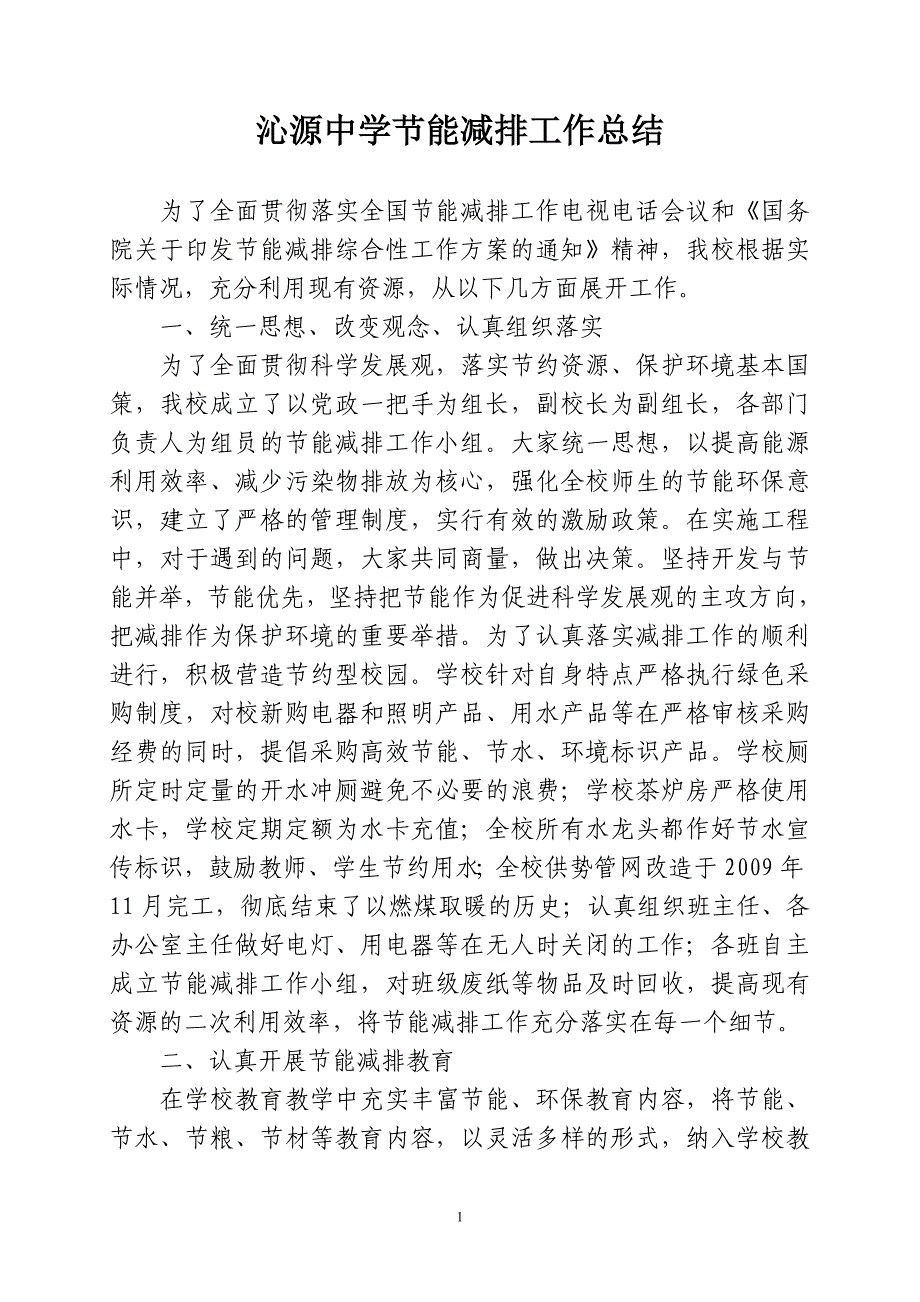 沁源中学节能减排工作总结
为了全面贯彻落实全国节能减排工作电视电话会议和《国务
院关于印发节能减排综合性工作方案的通知》精神，我校根据实
际情况，充分利用现有资源，从以下几方面展开工作。
一、统一思想、改变观念、认真组织落实
为了全面贯彻科学发展观，落实节约资源、保护环境基本国
策，我校成立了以党政一把手为组长，副校长为副组长，各部门
负责人为组员的节能减排工作小组。大家统一思想，以提高能源
利用效率、减少污染物排放为核心，强化全校师生的节能环保意
识，建立了严格的管理制度，实行有效的激励政策。在实施工程
中，对于遇到的问题，大家共同商量，做出决策。坚持开发与节
能并举，节能优先，坚持把节能作为促进科学发展观的主攻方向，
把减排作为保护环境的重要举措。为了认真落实减排工作的顺利
进行，积极营造节约型校园。学校针对自身特点严格执行绿色采
购制度，对校新购电器和照明产品、用水产品等在严格审核采购
经费的同时，提倡采购高效节能、节水、环境标识产品。学校厕
所定时定量的开水冲厕避免不必要的浪费；学校茶炉房严格使用
水卡，学校定期定额为水卡充值；全校所有水龙头都作好节水宣
传标识，鼓励教师、学生节约用水；全校供势管网改造于 2009 年
11 月完工，彻底结束了以燃煤取暖的历史；认真组织班主任、各
办公室主任做好电灯、用电器等在无人时关闭的工作；各班自主
成立节能减排工作小组，对班级废纸等物品及时回收，提高现有
资源的二次利用效率，将节能减排工作充分落实在每一个细节。
二、认真开展节能减排教育
在学校教育教学中充实丰富节能、环保教育内容，将节能、
节水、节粮、节材等教育内容，以灵活多样的形式，纳入学校教
1